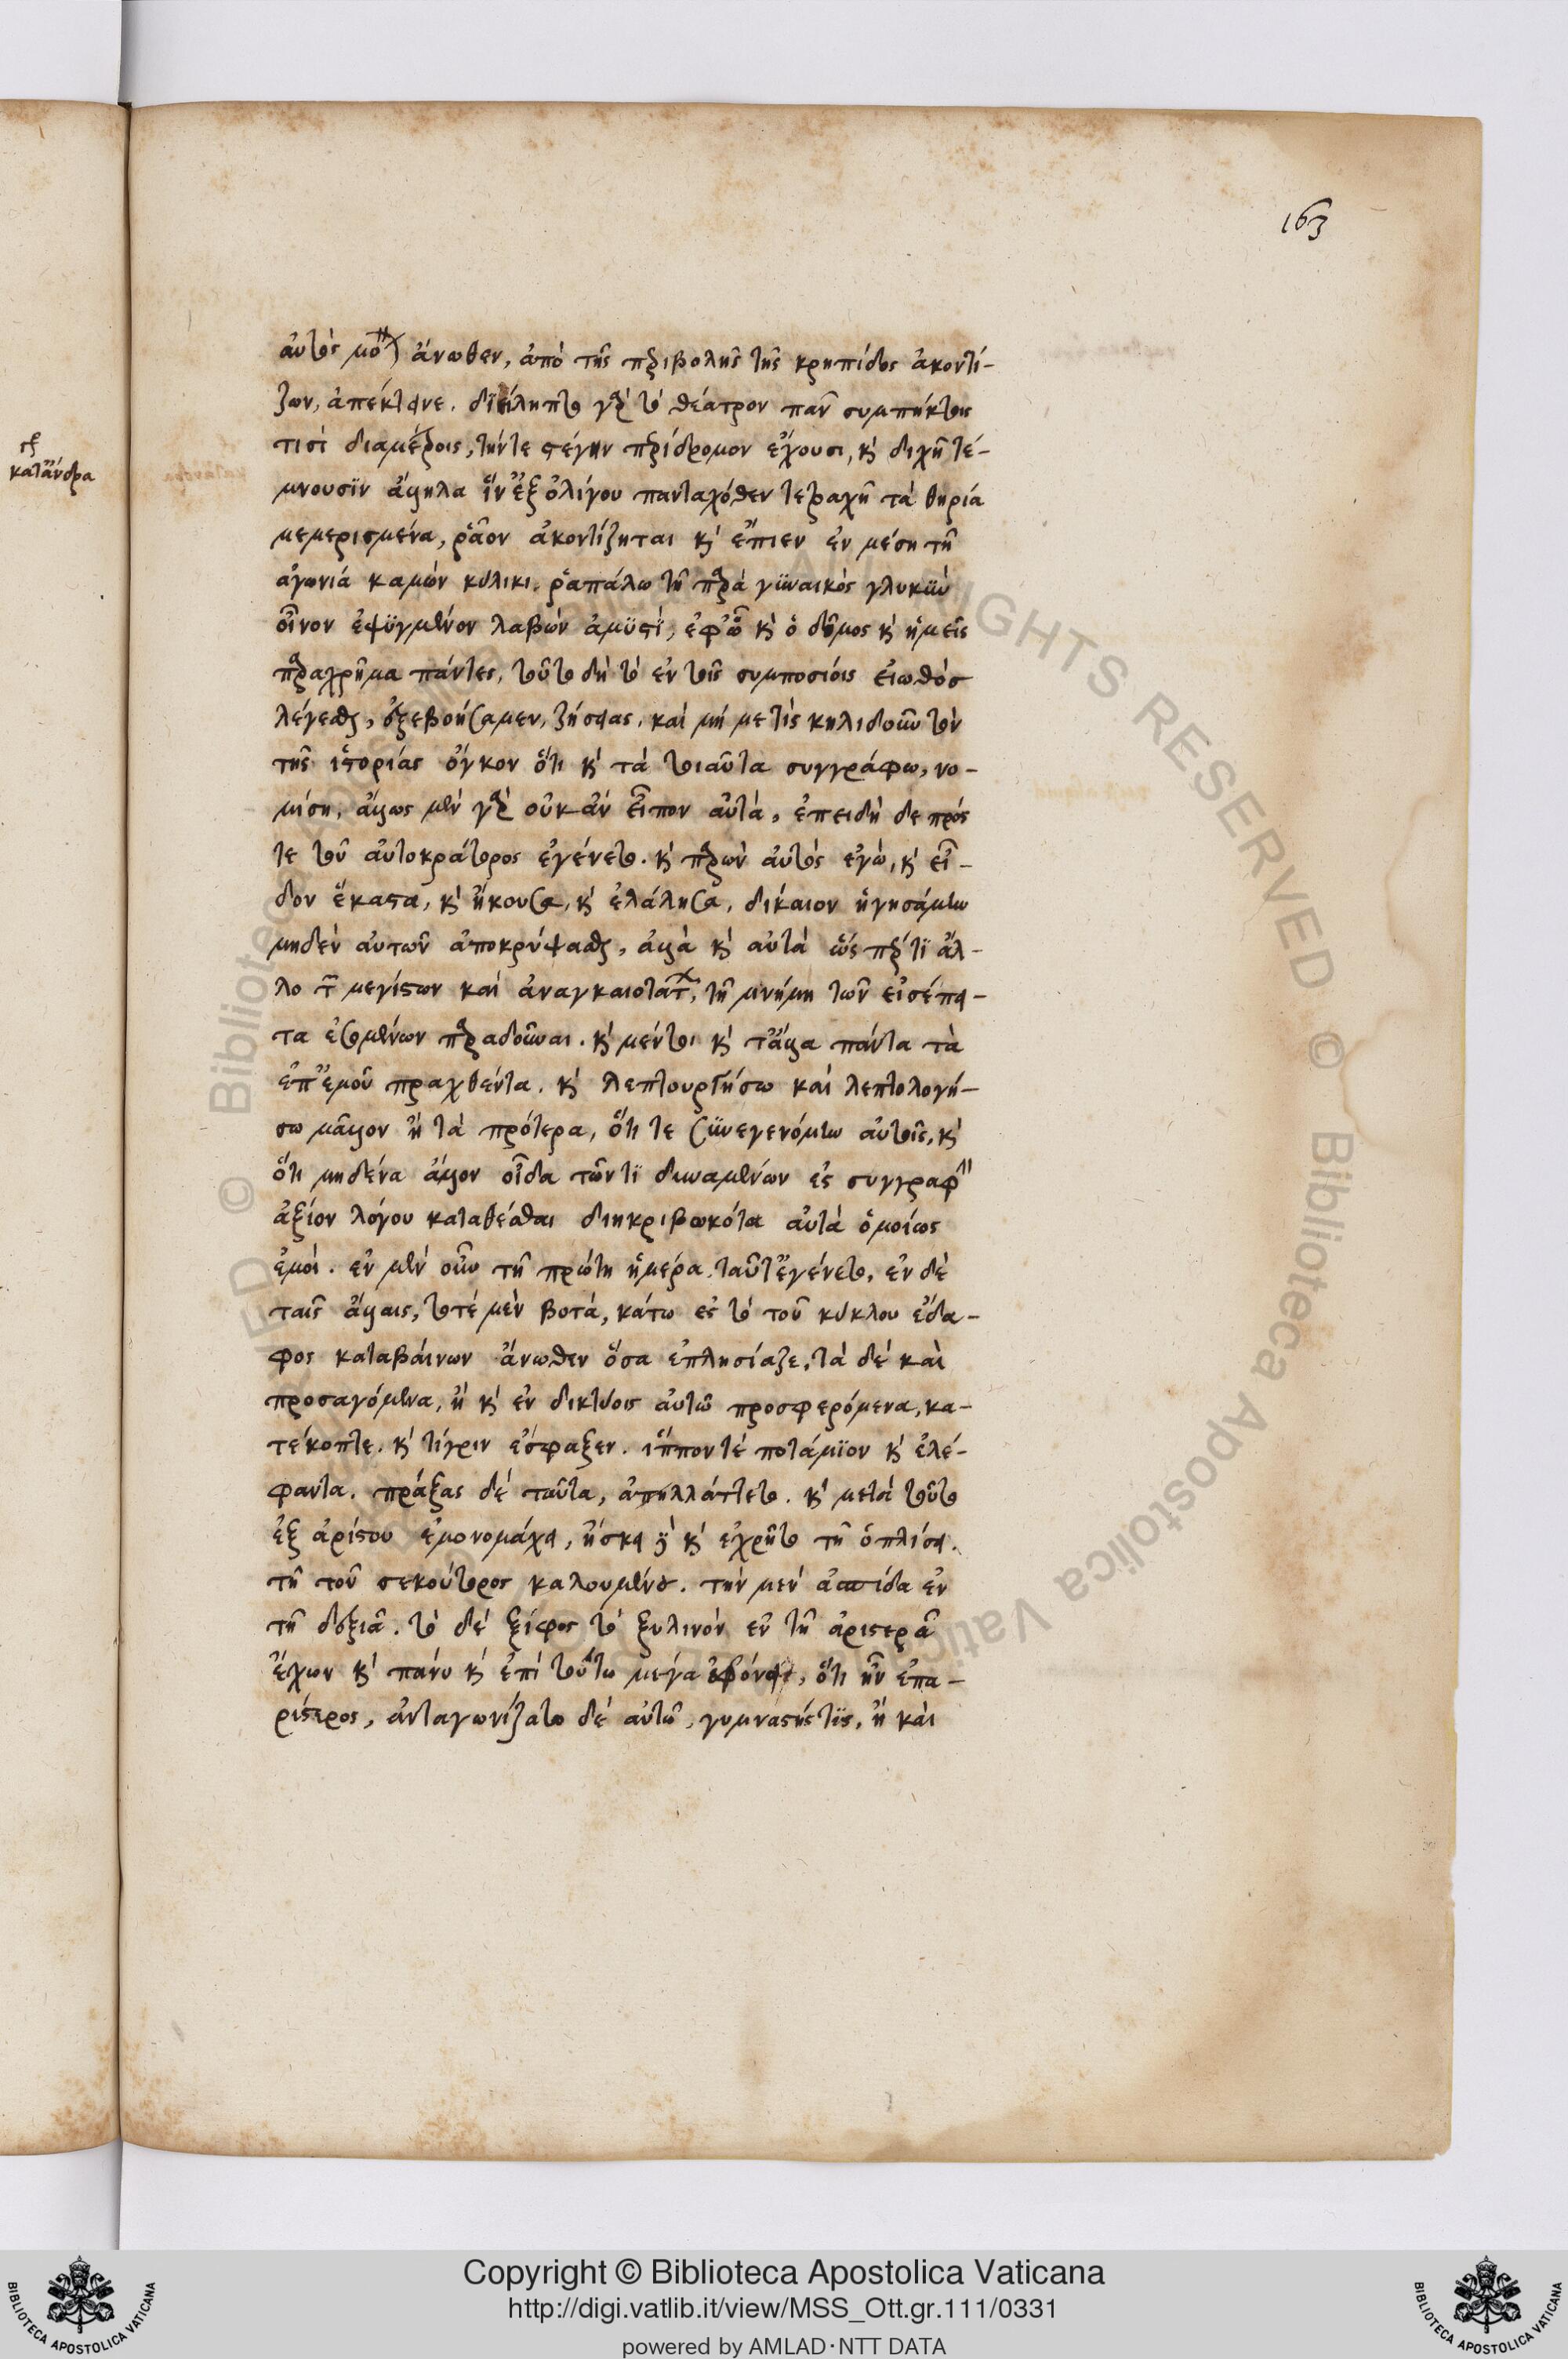 163
κατἄνδρα
αὐτὸς μο ἄνωθεν, ἀπὸ τῆς περιβολῆς τῆς κρηπίδος ἀκοντί-
ζων, ἀπέκτεινε. διείληπτο γὰρ τὸ θέατρον παν συμπήκτοις
τισὶ διαμέτροις, τήν τε στέγην περίδρομον ἔχουσι, καὶ διχῆ τέ-
μνουσιν ἄλληλα ἵν' ἐξ ὀλίγου πανταχόθεν τετραχῆ τὰ θηρία
μεμερισμένα, ῥᾶον ἀκοντίζηται καὶ ἔπιεν ἐν μέση τῆ
ἀγωνιά καμὼν κύλικι. ῥοπάλω τῆ παρὰ γυναικὸς γλυκὺν
οἶνον ἐψυγμένον λαβὼν ἀμυστί, ἐφ' ὧ καὶ ὁ δῆμος καὶ ἡμεῖς
παραχρῆμα πάντες, τοῦτο δὴ τὸ ἐν τοῖς συμποσίοις εἰωθός
λέγεσθαι, ἐξεβοήσαμεν, ζήσειας, καὶ μή με τὶς κηλιδοῦν τὸν
τῆς ἱστορίας ὄγκον ὅτι καὶ τὰ τοιαῦτα συγγράφω, νο-
μίση, ἄλλως μὲν γὰρ οὐκ ἂν εἶπον αὐτά, ἐπειδὴ δε πρός
τε τοῦ αὐτοκράτορος ἐγένετο. καὶ παρὼν αὐτὸς ἐγώ, καὶ εἶ-
δον ἕκαστα, καὶ ἤκουσα, καὶ ἐλάλησα, δίκαιον ἡγησάμην
μηδὲν αὐτῶν ἀποκρύψασθαι, ἀλλὰ καὶ αὐτὰ ὥσπερ τι ἄλ-
λο τ μεγίστων καὶ ἀναγκαιοτάτ, τῆ μνήμη τῶν εἰσέπει-
τα ἐσομένων παραδοῦναι. καὶ μέντοι καὶ τἄλλα πάντα τὰ
ἐπ' ἐμοῦ πραχθέντα. καὶ λεπτουργήσω καὶ λεπτολογή-
σω μᾶλλον ἢ τὰ πρότερα, ὅτι τε συνεγενόμην αὐτοῖς, καὶ
ὅτι μηδένα ἄλλον οἶδα τῶν τι δυναμένων ἐς συγγραφὴν
ἀξίον λόγου καταθέσθαι διηκριβωκότα αὐτὰ ὁμοίως
ἐμοί. ἐν μὲν οὖν τῆ πρώτη ἡμέρα. ταῦτ' ἐγένετο, ἐν δὲ
ταῖς ἄλλαις, τοτέ μὲν βοτά, κάτω ἐς τὸ τοῦ κύκλου ἔδα-
φος καταβαίνων ἄνωθεν ὅσα ἐπλησίαζε, τὰ δὲ καὶ
προσαγόμενα, ἢ καὶ ἐν δικτύοις αὐτῶ προσφερόμενα, κα-
τέκοπτε. καὶ τίγριν ἔσφαξεν. ἵππον τέ ποτάμιον καὶ ἐλέ-
φαντα. πράξας δὲ ταῦτα, ἀπηλλάττετο. καὶ μετὰ τοῦτο
ἐξ ἀρίστου ἐμονομάχει, ἤσκει δὲ καὶ ἐχρῆτο τῆ ὁπλίσει.
τῆ τοῦ σεκούτορος καλουμένου. τὴν μεν ἀσπίδα ἐν
τῆ δεξιᾶ. τὸ δὲ ξίφος τὸ ξυλινὸν ἐν τῆ ἀριστερᾶ
ἔχων καὶ πάνυ καὶ ἐπὶ τούτω μέγα ἐφρόνει, ὅτι ἦν ἐπα-
ρίστερος, ἀνταγωνίζατο δὲ αὐτῶ, γυμναστής τις, ἢ καὶ
Copyright © Biblioteca Apostolica Vaticana
http://digi.vatlib.it/view/MSS_Ott.gr.111/0331
powered by AMLAD·NTT DATA
BIBLIOTECA APOSTOLICA VATICANA
BIBLIOTECA APOSTOLICA VATICANA